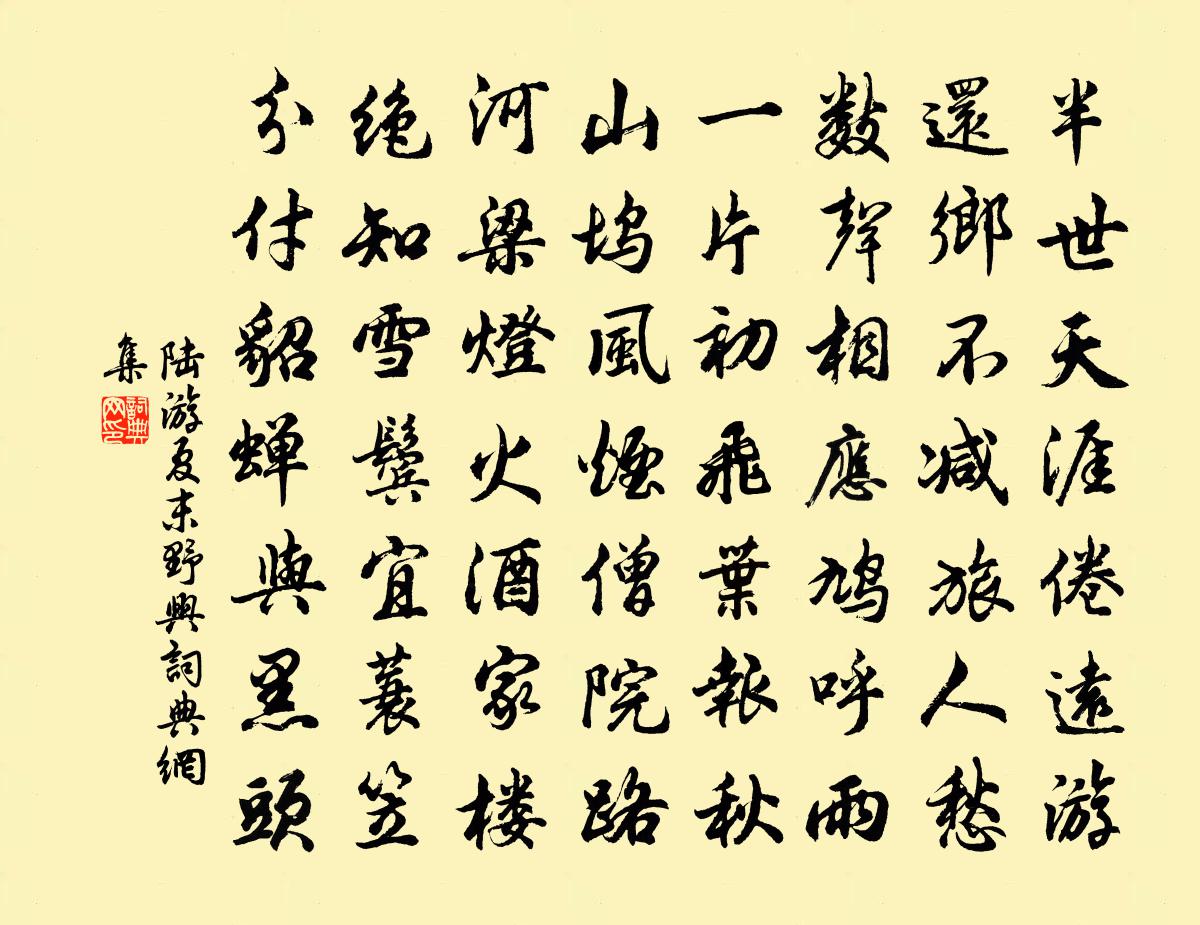 半世天涯倦遠游
還鄉不減旅人愁
數聲相應鳩呼雨
一片初飛葉報秋
山塢風煙僧院路
河梁燈火酒家樓
絕知雪鬢宜蓑笠
分付貂蟬與黑頭
陆游夏末野興詞典網
集
詞典
网印